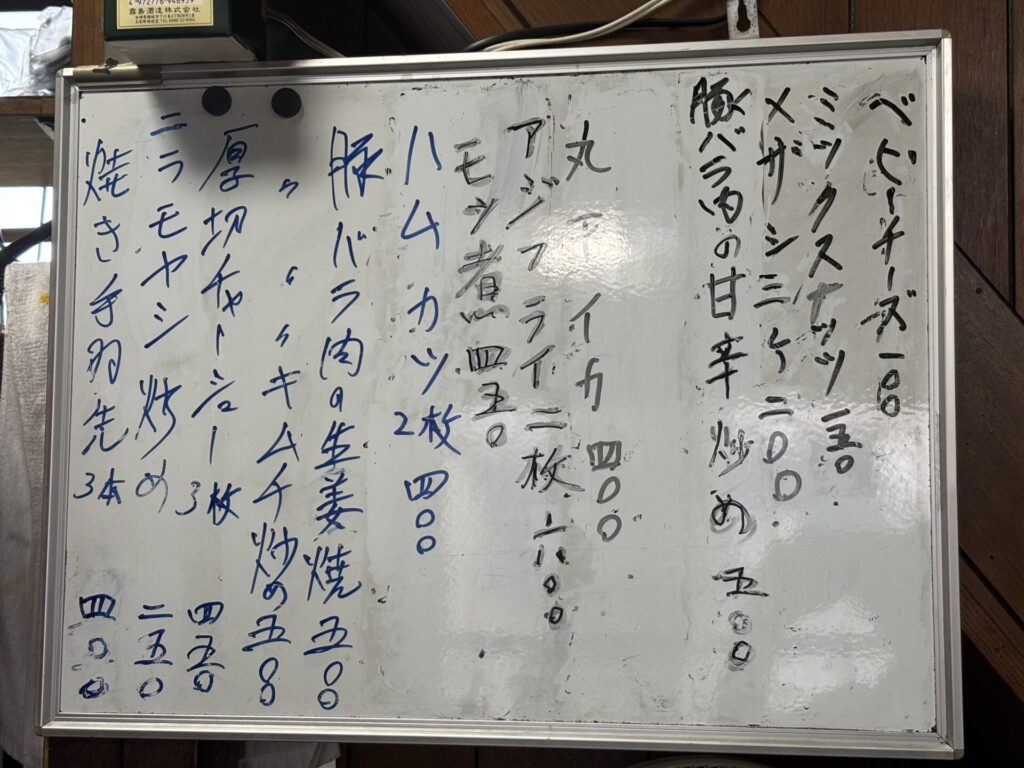 ベビーチーズ 一〇〇
ミックスナッツ 一五〇
メザシ三ケ 二〇〇
豚バラ肉の甘辛炒め 五〇〇
丸干イカ 四〇〇
アジフライ二枚 六〇〇
モツ煮 四五〇
ハムカツ2枚 四〇〇
豚バラ肉の生姜焼 五〇〇
〃 〃 〃キムチ炒め 五〇〇
厚切チャーシュー3枚 四五〇
ニラモヤシ炒め 二五〇
焼き手羽先3本 四〇〇
霧島酒造株式会社